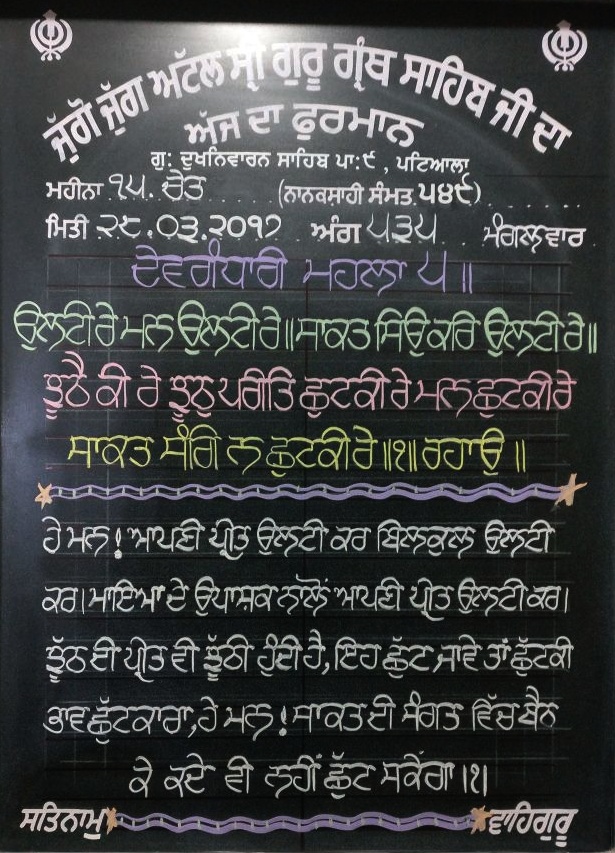 ਜੁੱਗੋ ਜੁੱਗ ਅਟੱਲ ਸ੍ਰੀ ਗੁਰੂ ਗ੍ਰੰਥ ਸਾਹਿਬ ਜੀ ਦਾ
ਅੱਜ ਦਾ ਫੁਰਮਾਨ
ਗੁ: ਦੁਖਨਿਵਾਰਨ ਸਾਹਿਬ ਪਾ:੯, ਪਟਿਆਲਾ
ਮਹੀਨਾ ੧੫. ਚੇਤ (ਨਾਨਕਸ਼ਾਹੀ ਸੰਮਤ ੫੪੯)
ਮਿਤੀ ੨੮.੦੩.੨੦੧੭ ਅੰਗ ੫੩੫ ਮੰਗਲਵਾਰ
ਦੇਵਗੰਧਾਰੀ ਮਹਲਾ ੫॥
ਉਲਟੀ ਰੇ ਮਨ ਉਲਟੀ ਰੇ॥ ਸਾਕਤ ਸਿਉ ਕਰਿ ਉਲਟੀ ਰੇ॥
ਝੂਠੈ ਕੀ ਰੇ ਝੂਠੁ ਪਰੀਤਿ ਛੁਟਕੀ ਰੇ ਮਨ ਛੁਟਕੀ ਰੇ
ਸਾਕਤ ਸੰਗਿ ਨ ਛੁਟਕੀ ਰੇ॥੧॥ ਰਹਾਉ॥
ਹੇ ਮਨ! ਆਪਣੀ ਪ੍ਰੀਤ ਉਲਟੀ ਕਰ ਬਿਲਕੁਲ ਉਲਟੀ
ਕਰ। ਮਾਇਆ ਦੇ ਉਪਾਸ਼ਕ ਨਾਲੋਂ ਆਪਣੀ ਪ੍ਰੀਤ ਉਲਟੀ ਕਰ।
ਝੂੱਠ ਦੀ ਪ੍ਰੀਤ ਵੀ ਝੂੱਠੀ ਹੁੰਦੀ ਹੈ, ਇਹ ਛੁੱਟ ਜਾਵੇ ਤਾਂ ਛੁੱਟਕੀ
ਭਾਵ ਛੁੱਟਕਾਰਾ, ਹੇ ਮਨ! ਸਾਕਤ ਦੀ ਸੰਗਤ ਵਿੱਚ ਬੈਨ
ਕੇ ਕਦੇ ਵੀ ਨਹੀਂ ਛੁੱਟ ਸਕੇਂਗਾ।੧।
ਸਤਿਨਾਮੁ ਵਾਹਿਗੁਰੂ